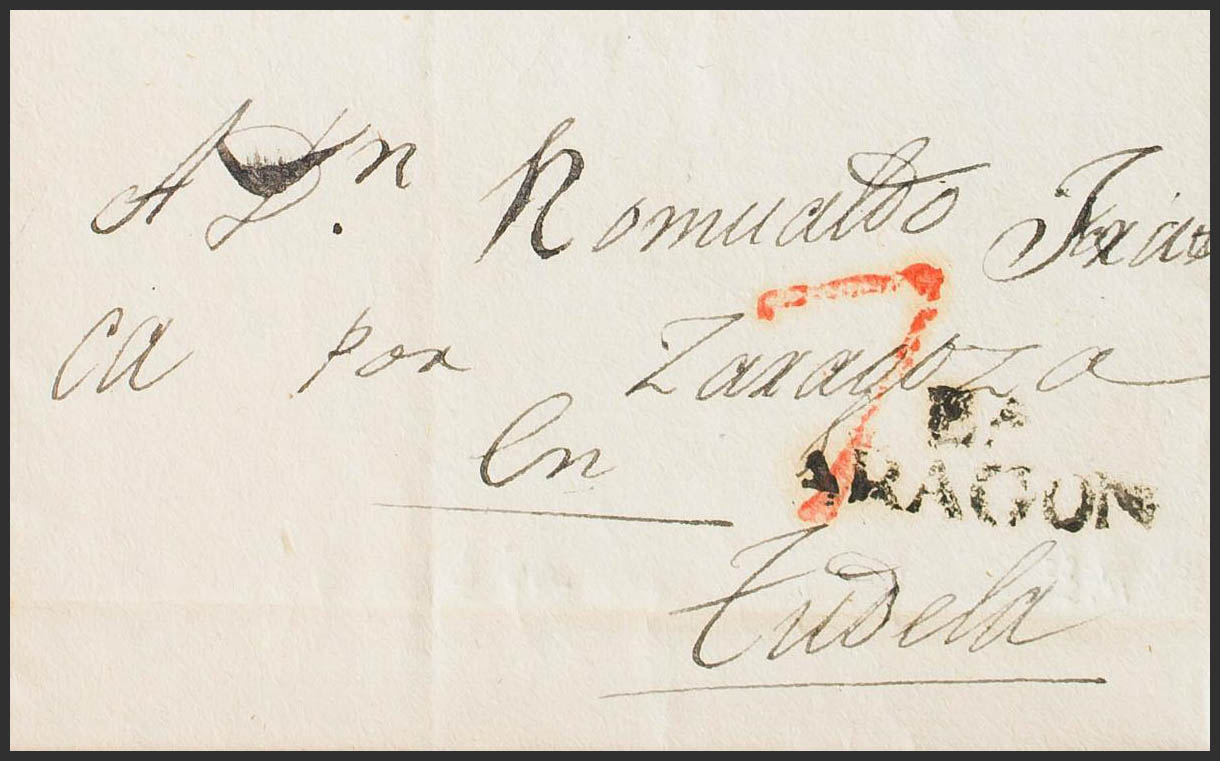 A Dn. Romualdo
ca por Zaragoza
7
En
BA
ARAGON
Tudela